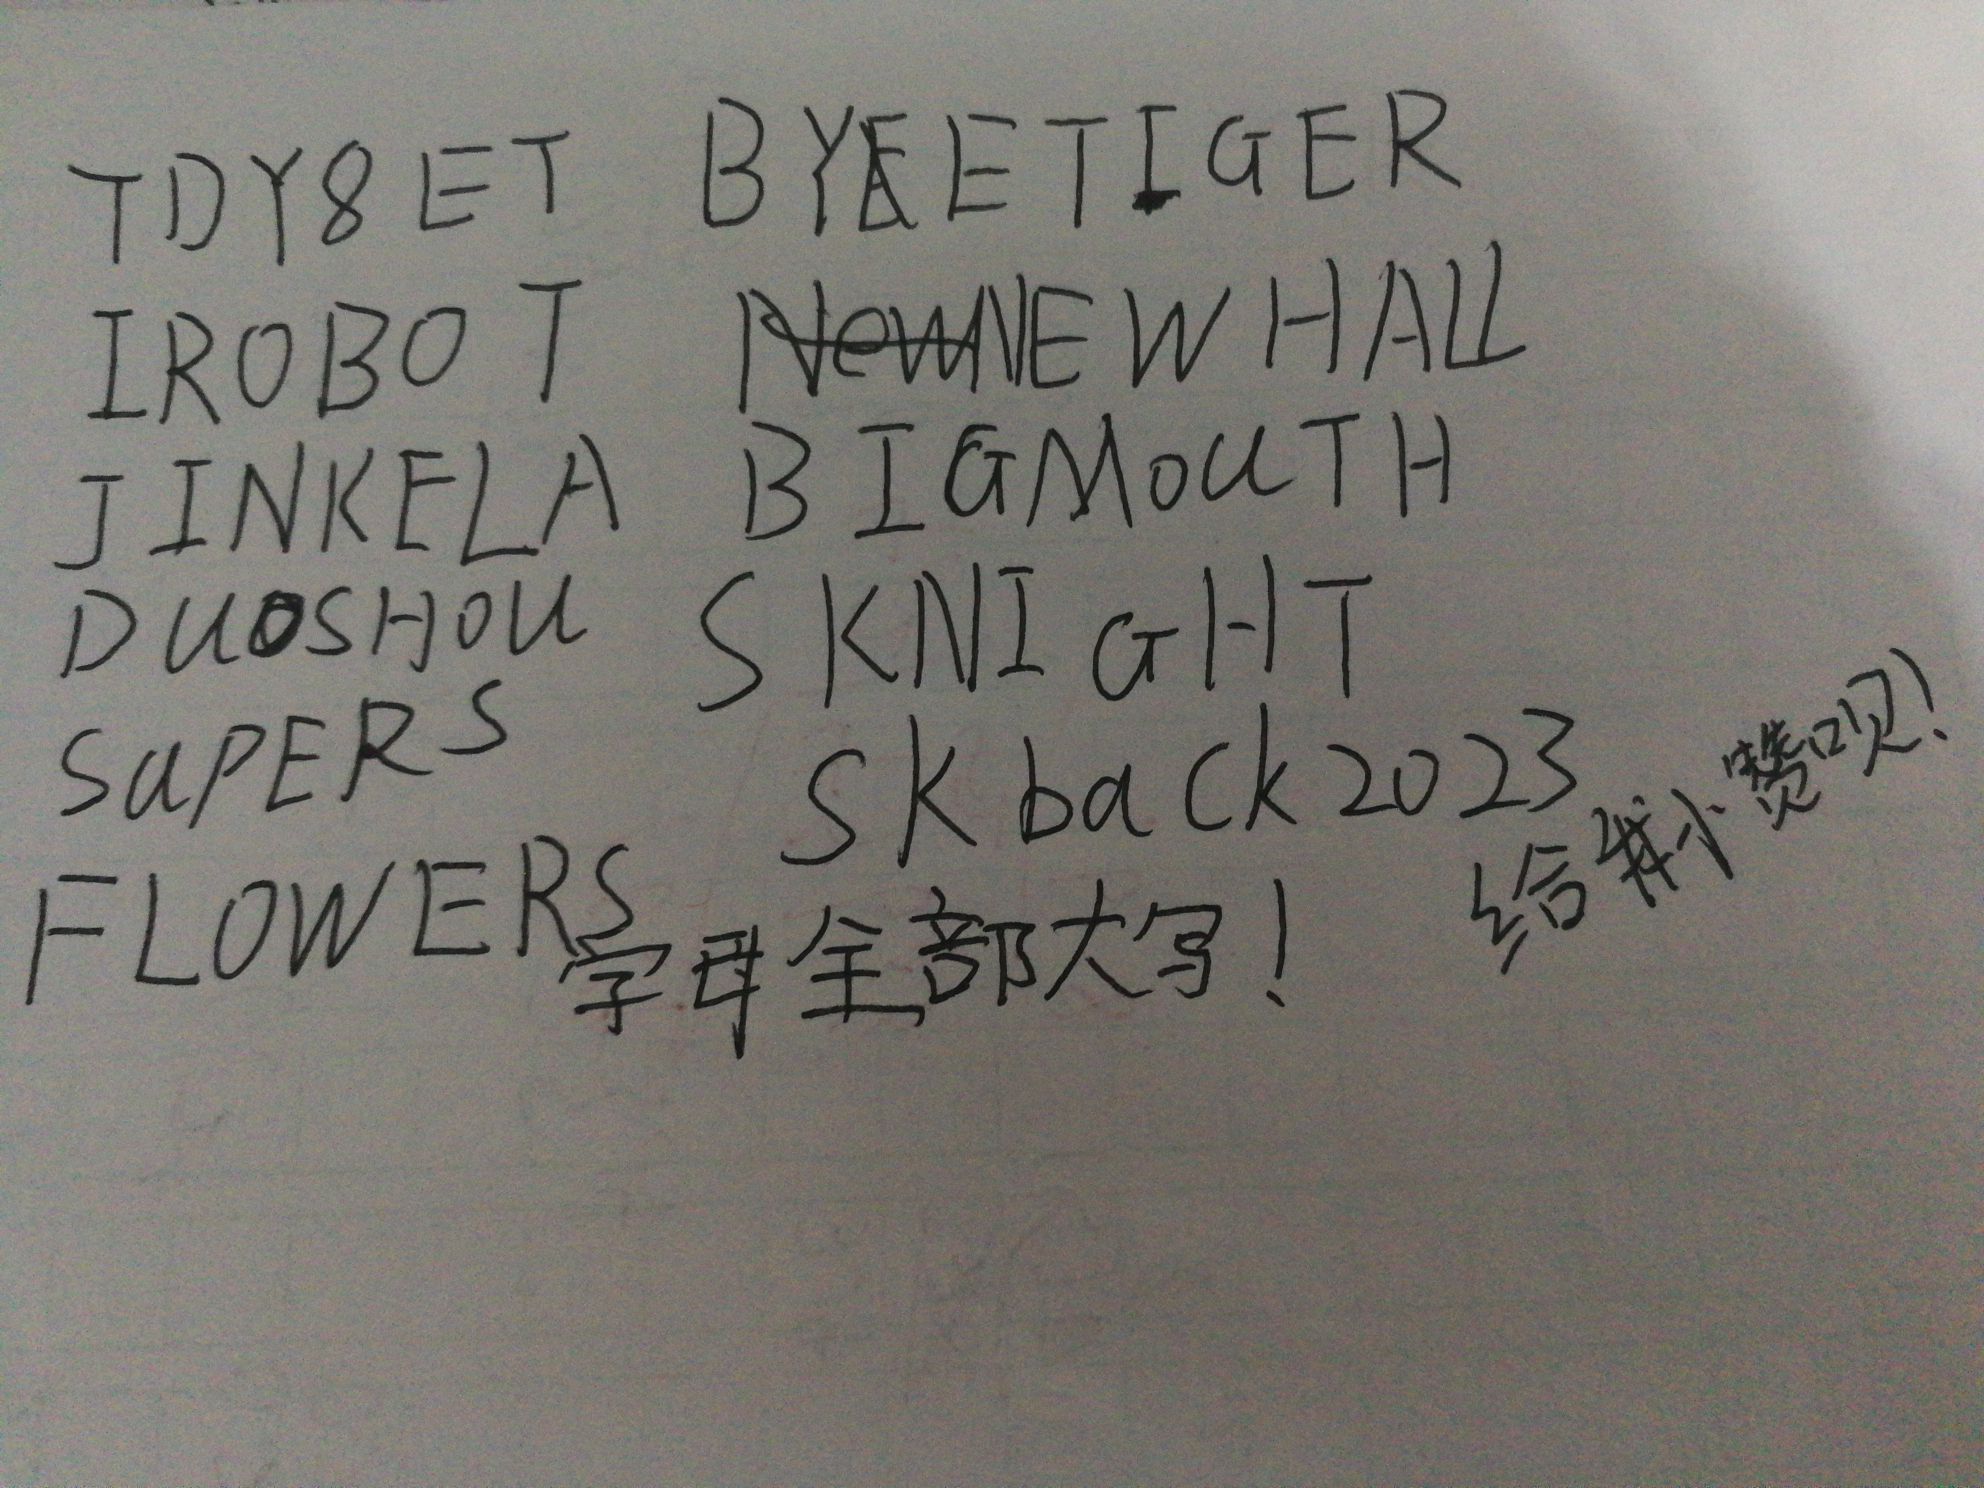 TDY8ET BYEETIGER
IROBOT NEWHALL
JINKELA BIGMOUTH
DUOSHOU SKNIGHT
SUPERS SKback2023
FLOWERS
字母全部大写!
给我小赞呗!